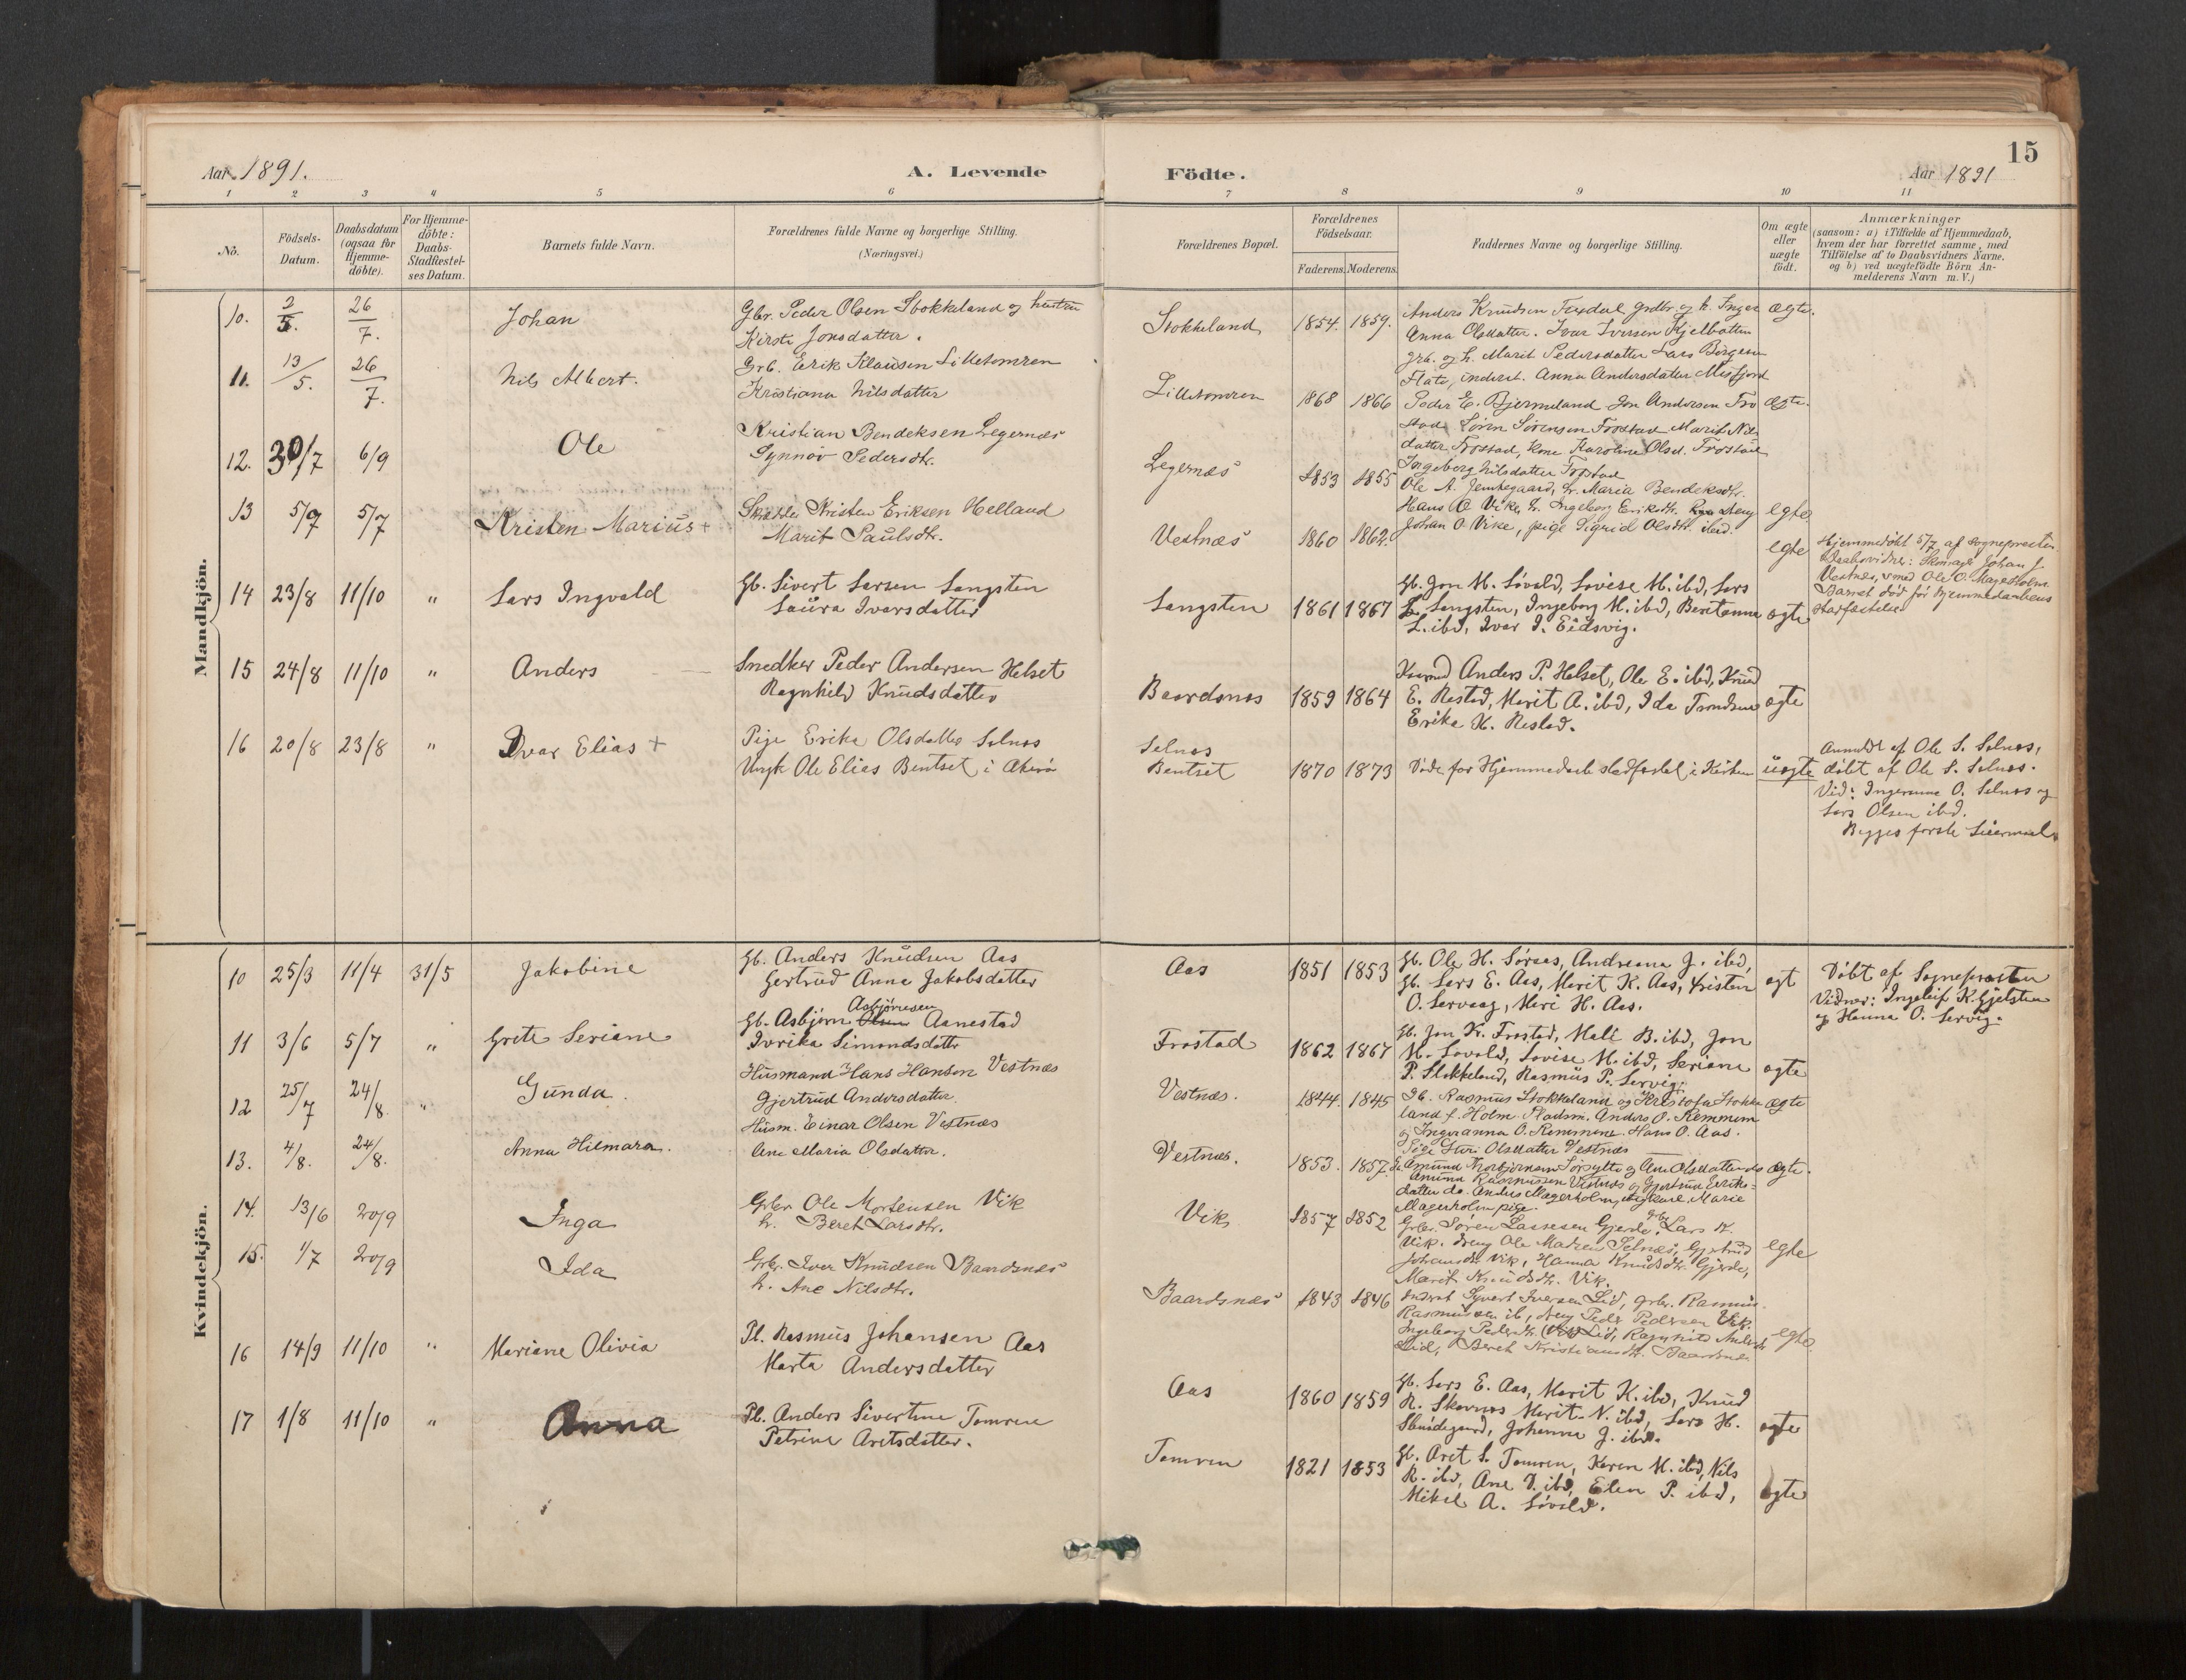 15
Aar 1891.
A. Levende
Födte.
Aar 1891
1 2 3 4 5 6 7 8 9 10 11
No.
Födsels-Datum.
Daabsdatum (ogsaa for Hjemme-döbte).
For Hjemme-döbte: Daabs-Stadfæstel-ses Datum.
Barnets fulde Navn.
Forældrenes fulde Navne og borgerlige Stilling.
(Næringsvei.)
Forældrenes Bopæl.
Forældrenes Födselsaar.
Faderens. Moderens.
Faddernes Navne og borgerlige Stilling.
Om ægte eller uægte födt.
Anmærkninger
(saasom: a) i Tilfælde af Hjemmedaab,
hvem der har forrettet samme, med
Tilföielse af to Daabsvidners Navne.
og b) ved uægtefödte Börn An-
melderens Navn m.V.)
Mandkjön.
10. 2/5. 26/7. Johan
Gbr. Peder Olsen Stokkeland og hustru
Kirsti Jonsdatter.
Stokkeland 1854. 1859.
Anders Knudsen grdbr. og h. Inger
Anna Olsdatter. Ivar Iversen Kjelbotten
grb. og h. Marit Pedersdatter Lars Börgesen
Flate, inderst. Anna Andersdatter Misfjord
Ægte.
11. 13/5. 26/7. Nils Albert.
Grb. Erik Klausen Lilletomren
Kristiana Nilsdatter
Lilletomren 1868 1866
Peder E. Bjermeland Jon Andersen Fro
stad Sören Sörensen Frostad Marit Nils
datter Frostad, Kone Karoline Olsd. Frostad
Ingeborg Nilsdatter Frostad
Ægte.
12. 30/7 6/9 Ole
Kristian Bendeksen Legernæs
Synnöv Pedersdtr.
Legernæs 1853 1855
Ole A. Jemtegaard, h. Maria Bendeksdtr.
Hans O Vike, h. Ingeborg Eriksdtr. Dreng
Johan O Vike, pige Sigrid Olsdtr. ibid.
egte
13 5/7 5/7 Kristen Marius +
Skrædder Kristen Eriksen Helland
Marit Paulsdtr.
Vestnæs 1860 1862.
egte
Hjemmedöbt 5/7 af Sognepresten
Daabsvidner: Skomager Johan J.
Vestnæs, smed Ole O. Magerholm
Barnet död för hjemmedaabens
stadfæstelse
14 23/8 11/10 " Lars Ingvald
Gb. Sivert Larsen Langsten
Laura Ivarsdatter
Langsten 1861 1867
Gb. Jon M. Lövold, Lovise M. ibd, Lars
L. Langsten, Ingeborg M. ibd, Beritanna
L. ibd, Ivar I. Eidsvig.
ægte
15 24/8 11/10 " Anders
Snedker Peder Andersen Helset
Ragnhild Knudsdatter
Baardsnes 1859 1864
Anders P. Helset, Ole E. ibd, Knud
E. Restad, Marit A. ibd, Ida Trondsen
Erika K. Restad.
ægte
16 20/8 23/8 " Ivar Elias +
Pige Erika Olsdatter Selnes
Ungk Ole Elias Bentset i Akerö
Selnes
Bentset 1870 1873
Döde før Hjemmedaab stadfæstet i Kirken
uægte
Anmeldt af Ole S. Selnes,
döbt af Ole S. Selnes.
Vid: Ingeranna O. Selnes og
Lars Olsen ibd.
Begges förste Leiermaal.
Kvindekjön.
10 25/3 11/4 31/5 Jakobine
Gb. Anders Knudsen Aas
Gertrud Anna Jakobsdatter
Aas 1851 1853
Gb. Ole H. Söraas, Andreana J. ibd,
Gb. Lars E. Aas, Marit K. Aas, Kristen
O. Servaag, Mari H. Aas.
ægt
Döbt af Sognepresten
Vidner: Ingeleif K. Gjelsten
og Hanna O. Servig.
11 3/6 5/7 " Grete Seriane
Gb. Asbjörn Asbjörnsen Aanestad
Ivrika Simondsdatter
Frostad 1862 1867
Gb. Jon Kr. Frostad, Mali B. ibd, Jon
M. Lovold, Lovise M. ibd, Seriane
P. Stokkeland, Rasmus P. Servig.
ægte
12 25/7 24/8. " Gunda.
Husmand Hans Hansen Vestnæs
Gjertrud Andersdatter.
Vestnæs. 1844. 1845
Gb. Rasmus Stokkeland og Kristofa Stokke
land f. Holm. Pladsm. Anders O. Remmem
og Ingeranna O. Remmem. Hans O. Aas.
Pige Guri Olsdatter Vestnæs
ægte
13. 4/8. 24/8. Anna Hilmara.
Husm. Einar Olsen Vestnæs
Ane Maria Olsdatter.
Vestnæs. 1853. 1857.
Amund Thorbjörnsen Sörsylte og Ane Olsdatter do
Amund Rasmussen Vestnæs og Gjertrud Eriks-
datter do. Anders Magerholm, ungkarl, Marie
Magerholm pige.
ægte.
14. 13/6 20/9 Inga
Grbr Ole Mortensen Vik
h. Beret Larsdtr.
Vik 1857 1852
Grbr. Sören Lassesen Gjerde, grbr. Lars K.
Vik. dreng Ole Madsen Selnæs, Gjertrud
Johansdtr. Vik, Hanna Knudsdtr. Gjerde,
Marit Knudsdtr. Vik.
egte
15. 1/7 20/9 Ida
Grbr. Iver Knudsen Baardsnæs
h. Ane Nilsdtr.
Baardsnæs 1843 1846
Inderst Syvert Iversen Lid, grbr. Rasmus
Rasmussen ib, dreng Peder Pedersen Vik.
Ingeborg Pedersdtr. Lid, Ragnhild Andersdtr
Lid, Beret Kristiansdtr. Baardsnæs
egte.
16 14/9 11/10 " Mariane Olivia
Pl. Rasmus Johansen Aas
Marta Andersdatter
Aas 1860 1859
Gb. Lars E. Aas, Marit K. ibd, Knud
R. Skavnes Marit N. ibd, Lars H.
Johanna J. ibd.
ægte
17 1/8 11/10 " Anna
Pl. Anders Sivertsen Tomren
Petrine Aretsdatter.
Tomren 1821 1853
Gb. Aret S. Tomren, Karen M. ibd, Nils
R. ibd, Ane D. ibd, Elen P. ibd,
Mikal A. Lövold.
ægte